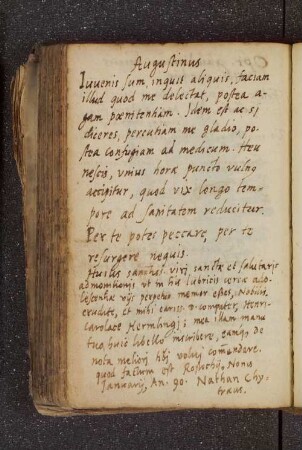 Augustinus
Iuuenis sum inquit aliquis, faciam
illud quod me delectat, postea a-
gam poenitentiam. Idem est ac si
diceres, percutiam me gladio, po-
stea confugiam ad medicum. Heu
nescis, vnius horae puncto vulnus
accipitur, quod vix longo tem-
pore ad sanitatem reducitur.
Per te potes peccare, per te
resurgere nequis.
Huius sanctiss. viri sanctae et salutaris
admonitionis vt in hac lubricis adole-
scentiae vijs perpetuo memor esses, Nobilis,
erudite, et mihi cariss. Henri-
ce; mea illam manu
tuo huic libello inscribere, eamq; de
nota meliori tibi volui commendare.
quod factum est Rostochij, Nonis
Januarij, An. 90. Nathan Chy-
traeus.